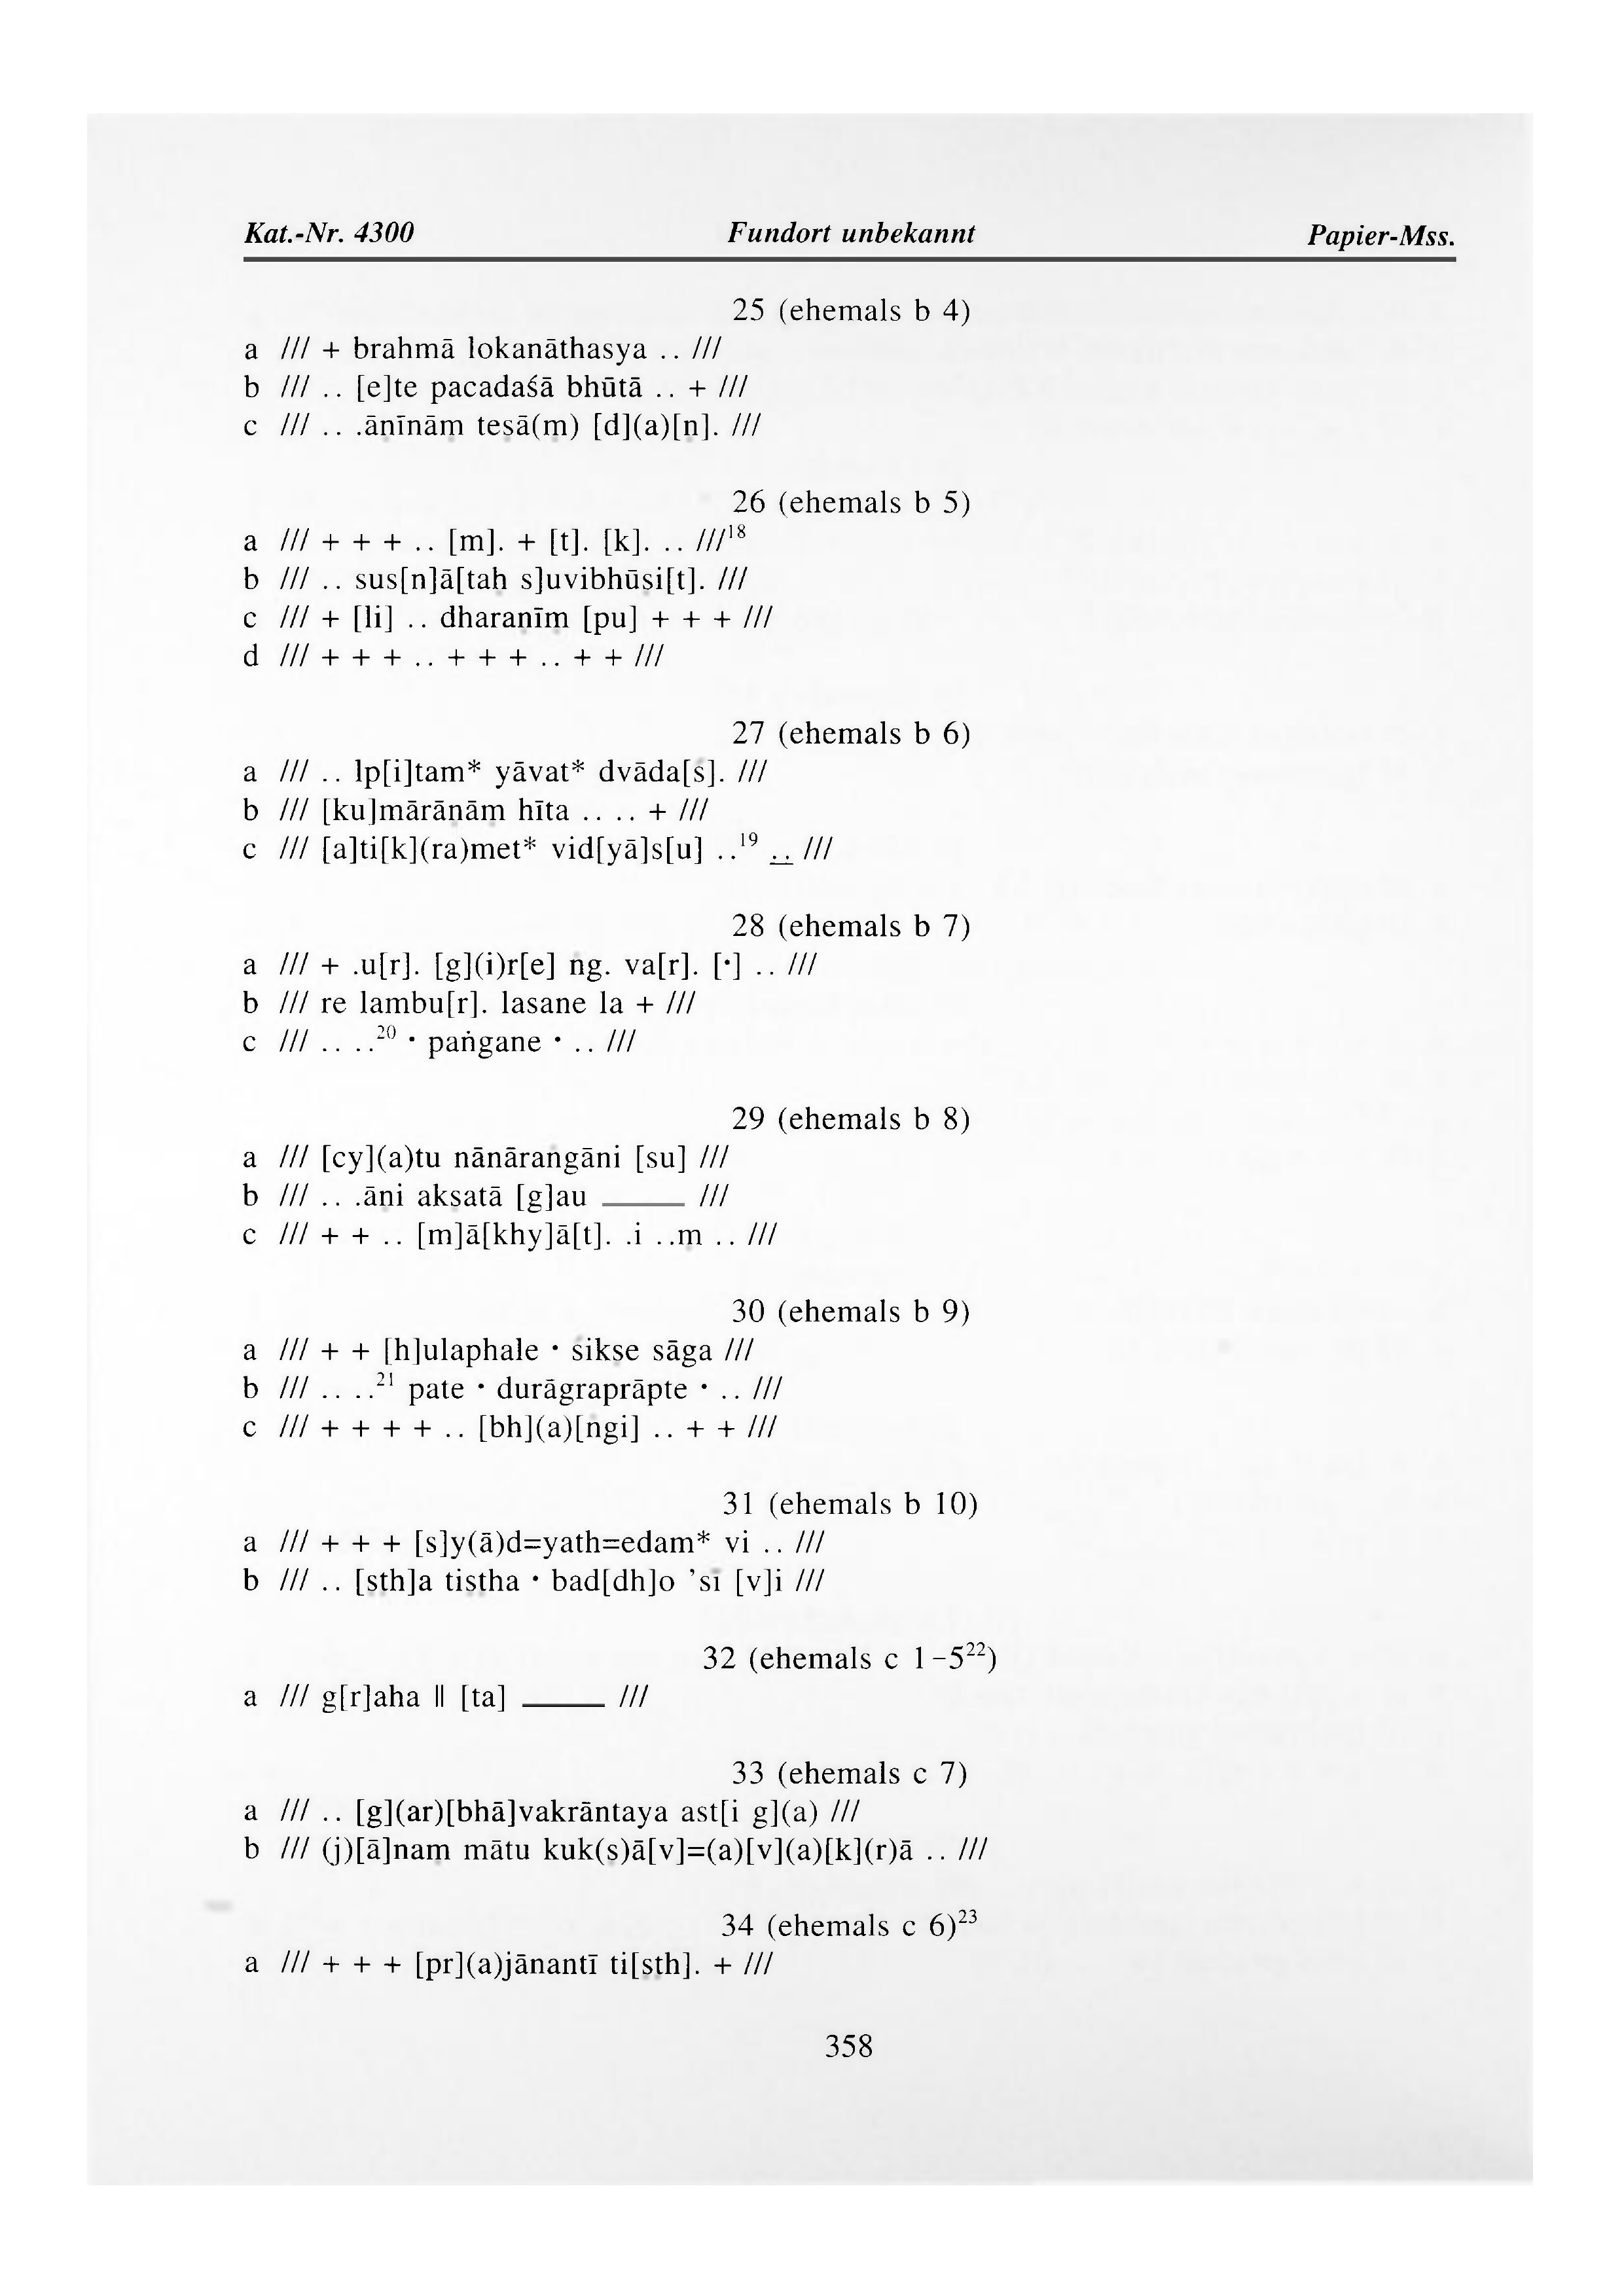 Kat.-Nr. 4300 Fundort unbekannt Papier-Mss.
25 (ehemals b 4)
a /// + brahmā lokanāthasya .. ///
b /// .. [e]te pacadaśā bhūtā .. + ///
c /// .. .āṇīnāṃ teṣā(ṃ) [d](a)[ṇ]. ///
26 (ehemals b 5)
a /// + + + .. [m]. + [t]. [k]. .. ///18
b /// .. sus[n]ā[taḥ s]uvibhūṣi[t]. ///
c /// + [li] .. dharaṇīṃ [pu] + + + ///
d /// + + + .. + + + .. + + ///
27 (ehemals b 6)
a /// .. lp[i]tam* yāvat* dvāda[ś]. ///
b /// [ku]mārāṇāṃ hīta .. .. + ///
c /// [a]ti[k](ra)met* vid[yā]s[u] ..19 .. ///
28 (ehemals b 7)
a /// + .u[r]. [g](i)r[e] ṅg. va[r]. [•] .. ///
b /// re lambu[r]. lasane la + ///
c /// .. ..20 • paṅgane • .. ///
29 (ehemals b 8)
a /// [cy](a)tu nānāraṅgāni [su] ///
b /// .. .āṇi akṣatā [g]au _____ ///
c /// + + .. [m]ā[khy]ā[t]. .i ..ṃ .. ///
30 (ehemals b 9)
a /// + + [h]ulaphale • śikṣe sāga ///
b /// .. ..21 pate • durāgraprāpte • .. ///
c /// + + + + .. [bh](a)[ṅgi] .. + + ///
31 (ehemals b 10)
a /// + + + [s]y(ā)d=yath=edam* vi .. ///
b /// .. [ṣṭh]a tiṣṭha • bad[dh]o ’sī [v]i ///
32 (ehemals c 1-522)
a /// g[r]aha ‖ [ta] _____ ///
33 (ehemals c 7)
a /// .. [g](ar)[bhā]vakrāntaya ast[i g](a) ///
b /// (j)[ā]naṃ mātu kuk(ṣ)ā[v]=(a)[v](a)[k](r)ā .. ///
34 (ehemals c 6)23
a /// + + + [pr](a)jānantī ti[ṣṭh]. + ///
358